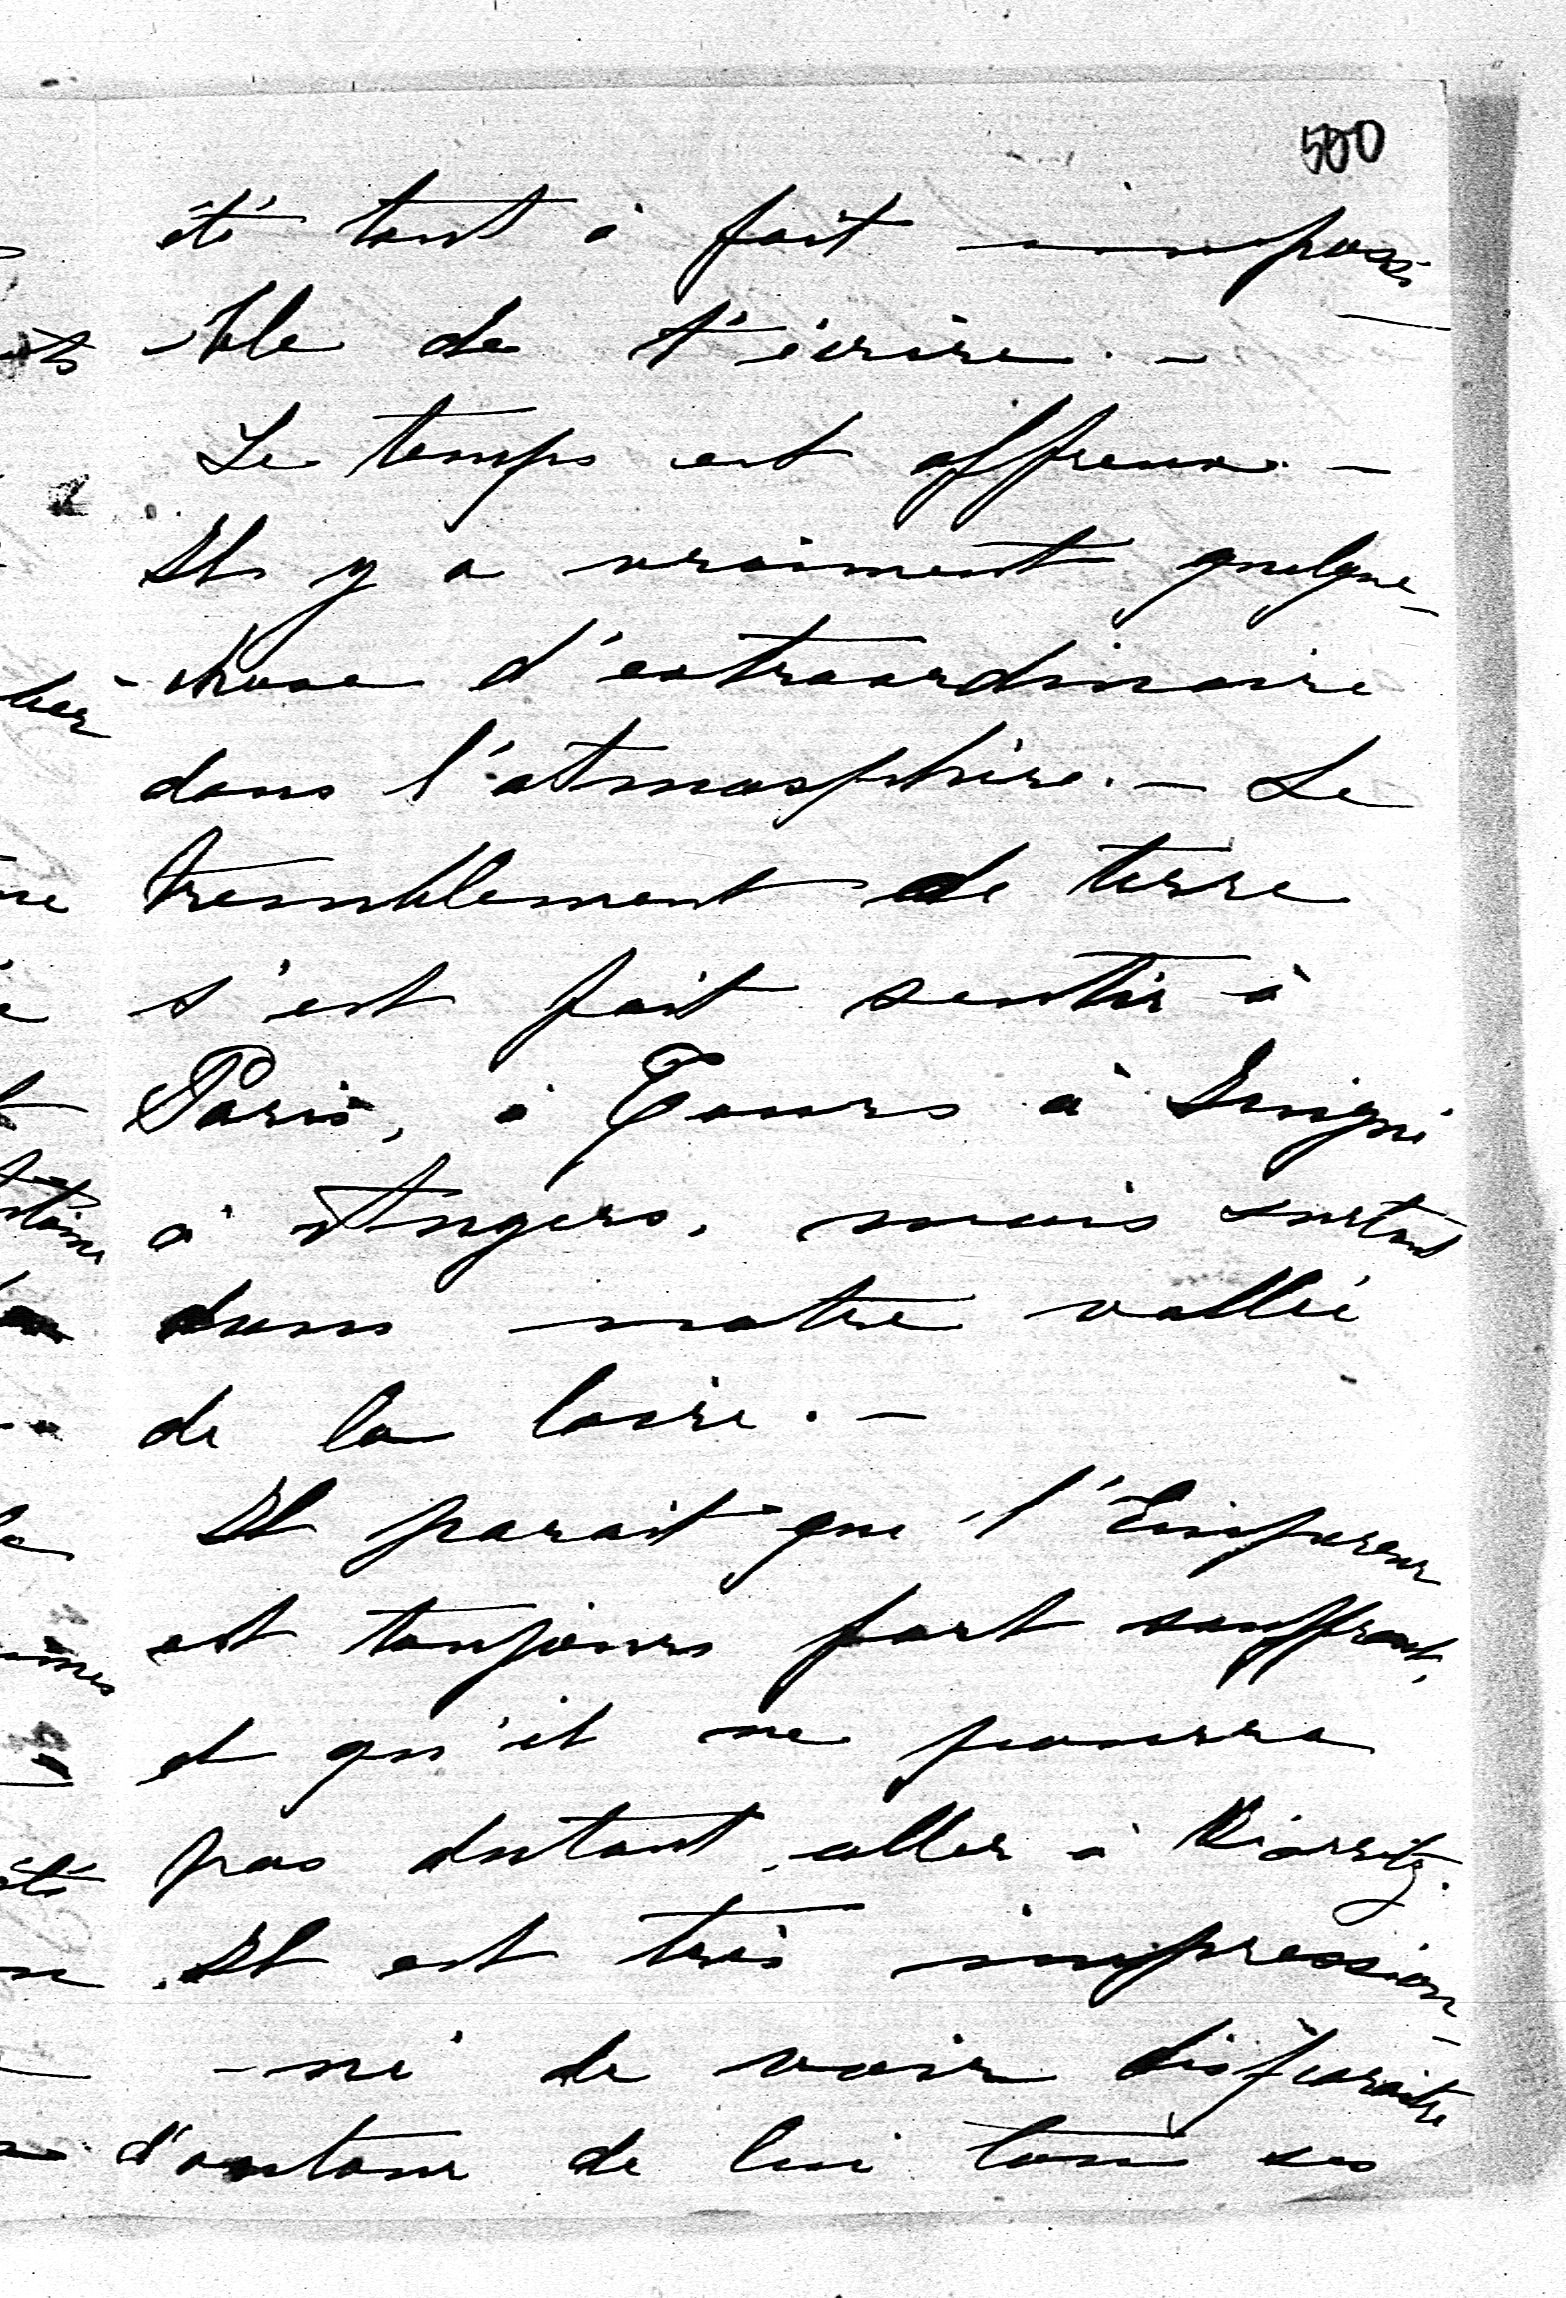 500
été tout à fait impossi
-ble de t'écrire. -
Le temps est affreux. -
Il y a vraiment quelque-
-chose d'extraordinaire
dans l'atmosphère. - Le
tremblement de terre
s'est fait sentir à
Paris, à Tours à
à Angers, mais surtout
dans notre vallée
de la Loire. -
Il parait que l'Empereur
est toujours fort souffrant,
et qu'il ne pourra
pas dutout aller à Biarritz.
Il est très impression-
-né de voir disparaitre
d'autour de lui tous ses